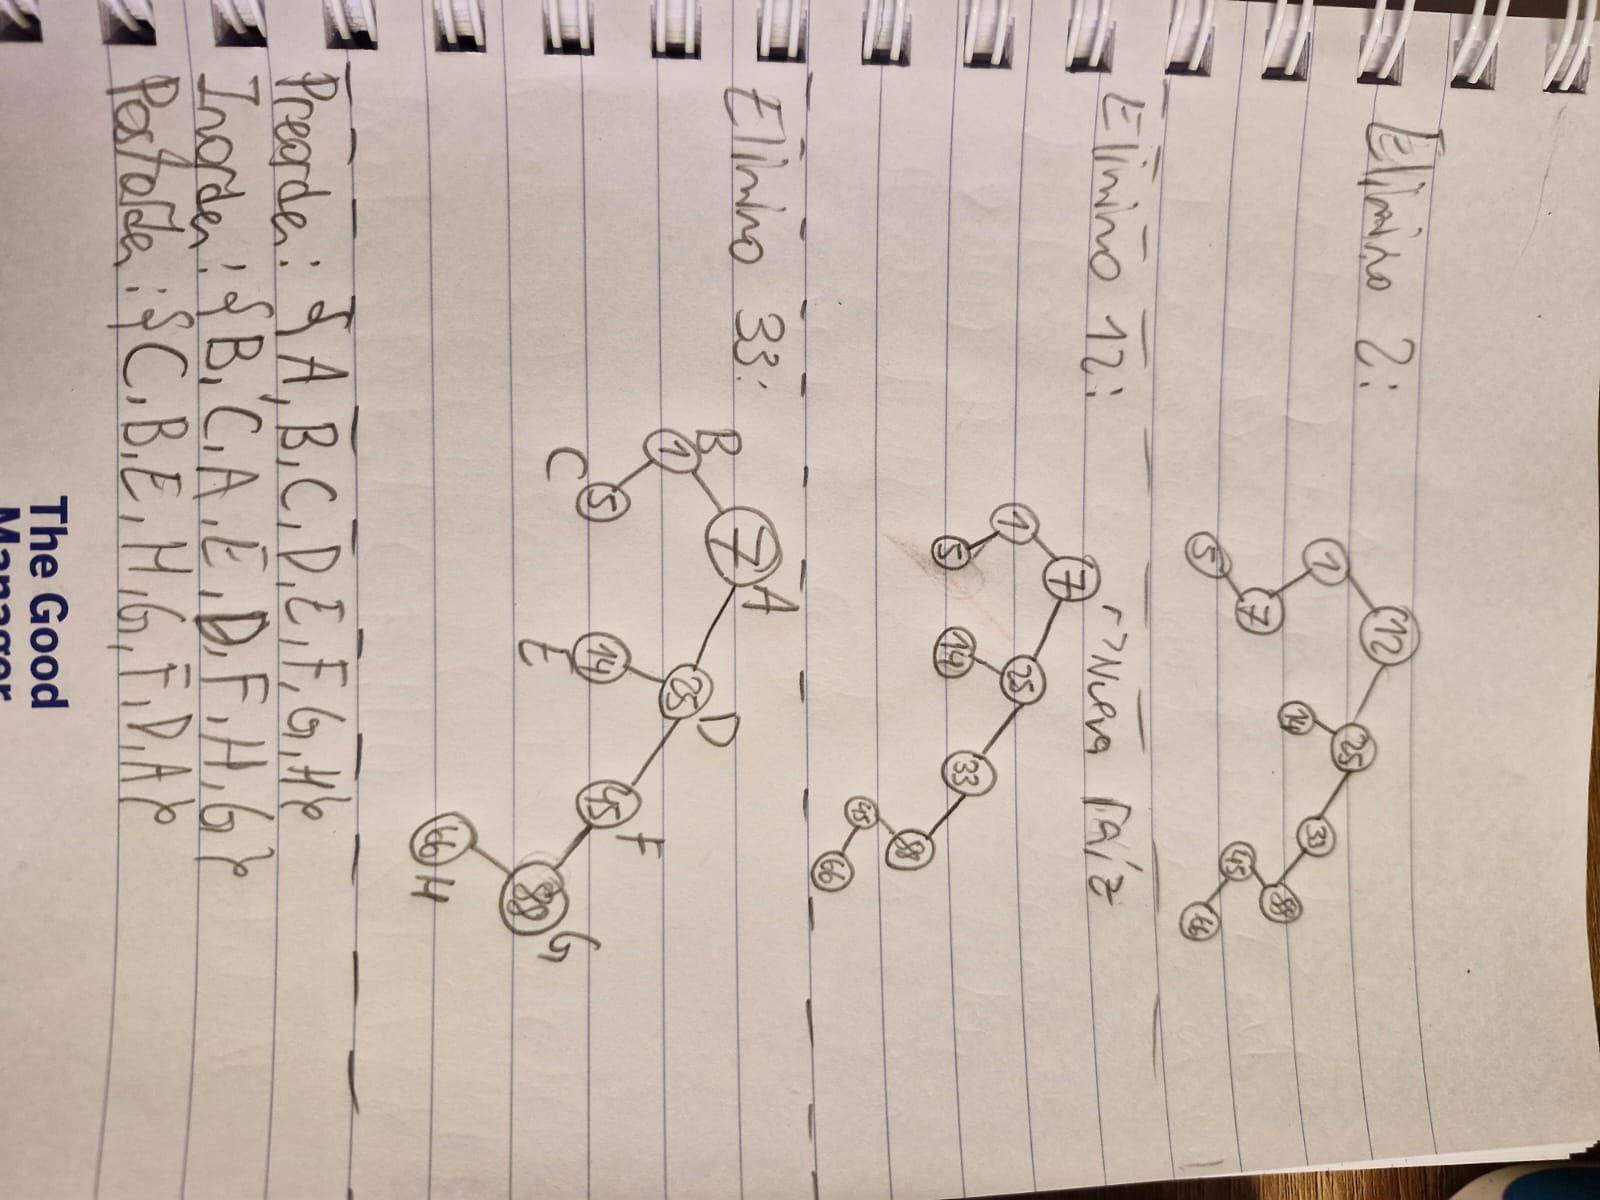 Elimino 2:
12
1
25
7
14
33
5
88
45
66
Elimino 12:
Nueva raíz
7
1
25
5
14
33
88
45
66
Elimino 33:
7 A
B 1
25 D
C 5
E 14
45 F
88 G
66 H
Preorden: {A, B, C, D, E, F, G, H}
Inorden: {B, C, A, E, D, F, H, G}
Postorden: {C, B, E, H, G, F, D, A}
The Good
Manager